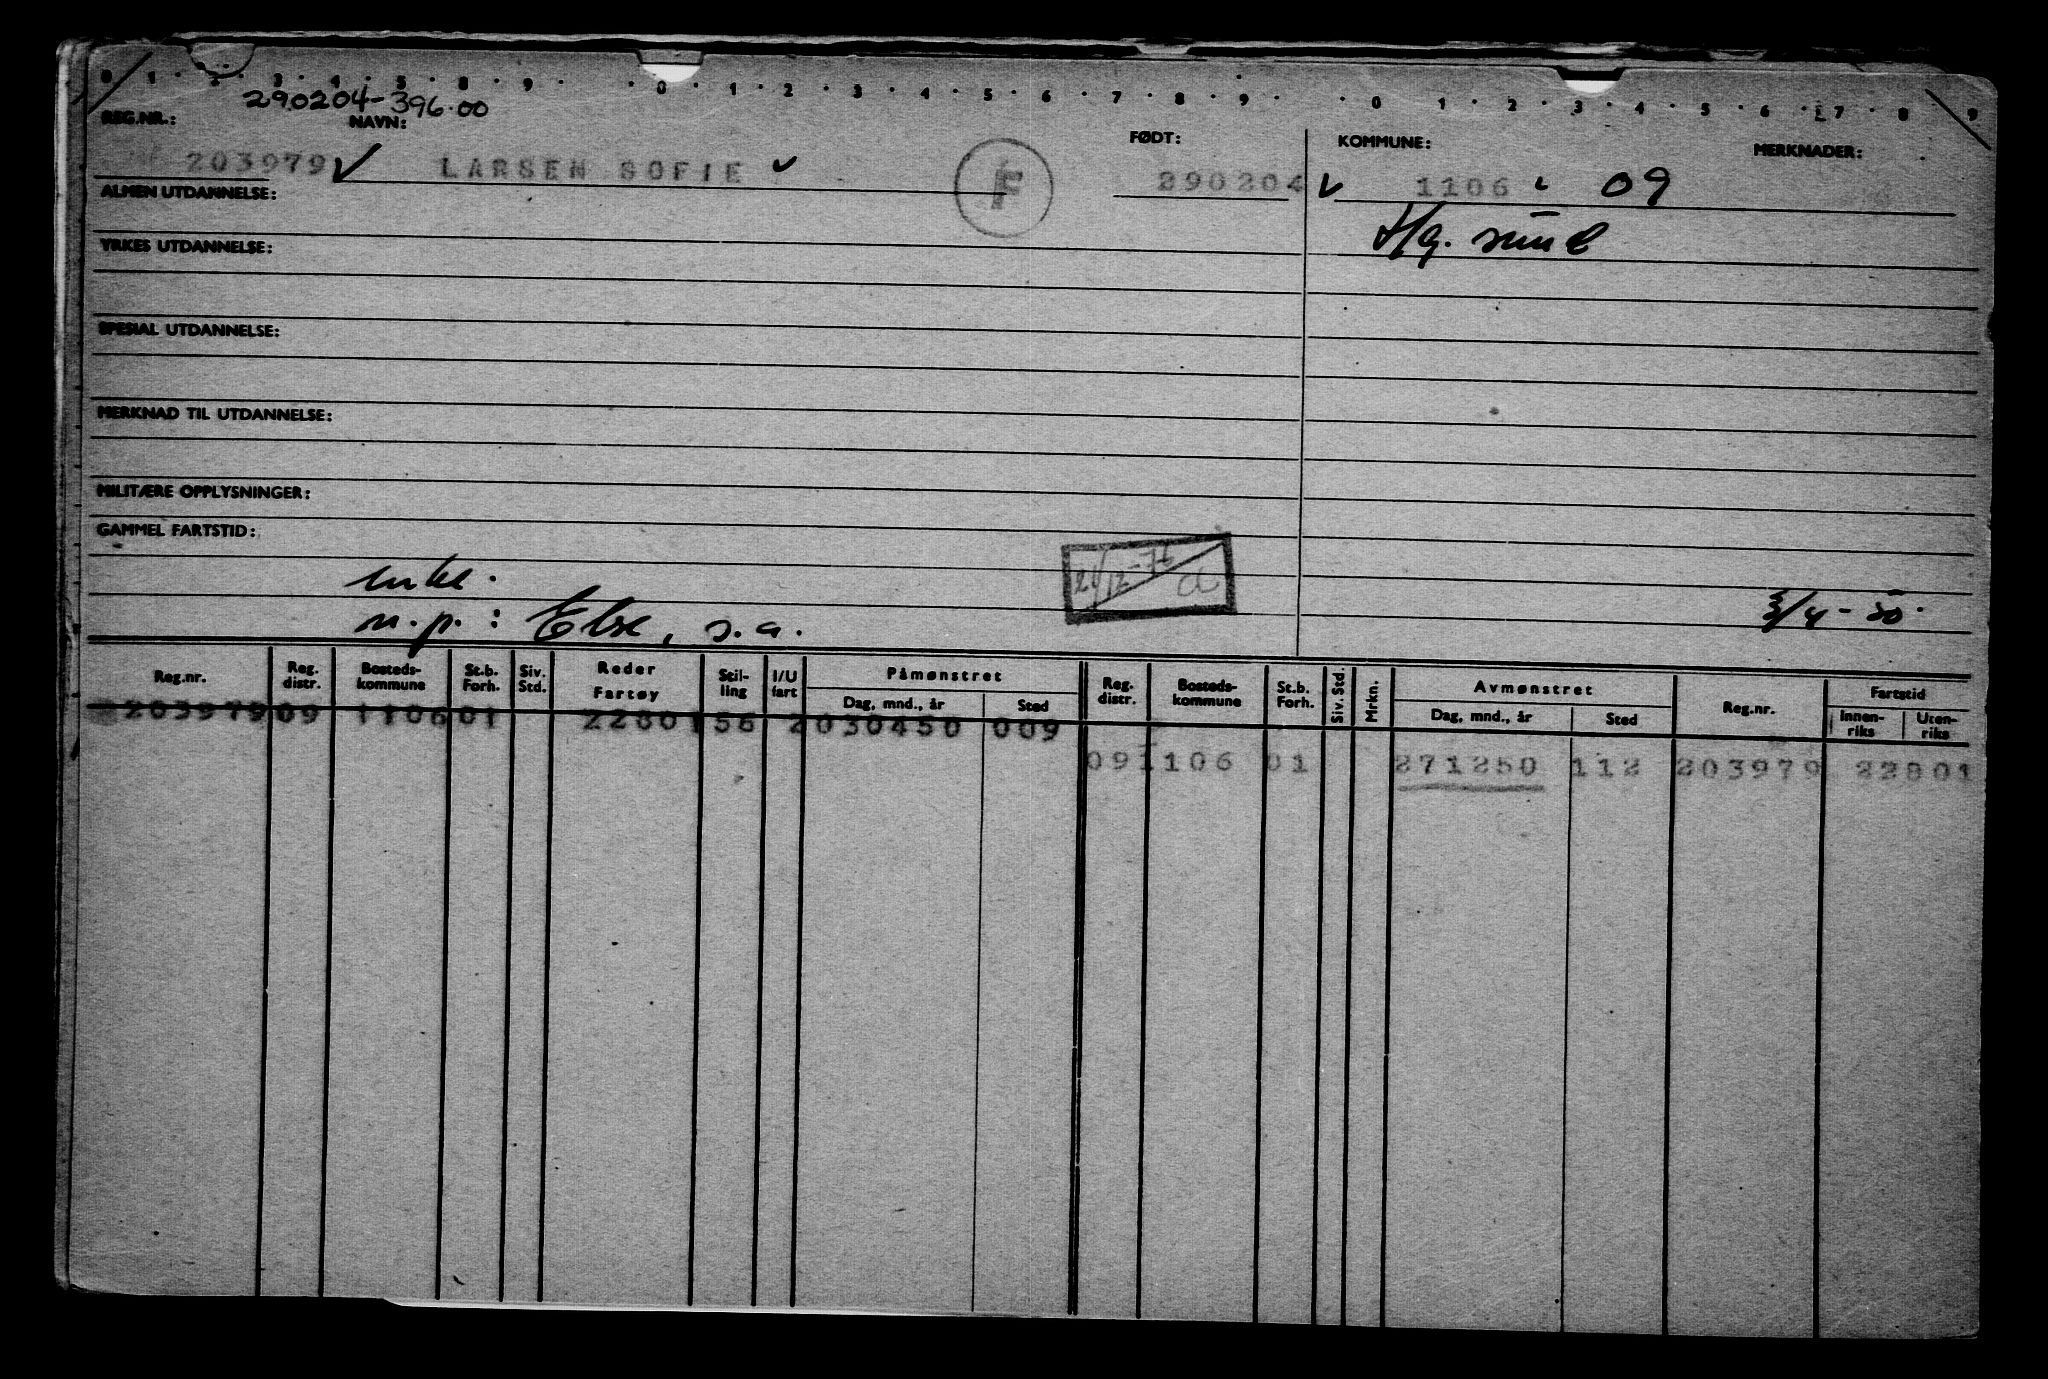 0 1 · 2 · 3 · 4 · 5 · 8 · 9 · · 0 · 1 · 2 · 3 · 4 · 5 · 6 · 7 · 8 · 9 · · 0 · 1 · 2 · 3 · 4 · 5 · 6 · 7 · 8 9
290204-396.00
REG.NR.: NAVN: FØDT: KOMMUNE: MERKNADER:
203979 LARSEN SOFIE F 290204 1106 09
ALMEN UTDANNELSE:
Hg. sund
YRKES UTDANNELSE:
SPESIAL UTDANNELSE:
MERKNAD TIL UTDANNELSE:
MILITÆRE OPPLYSNINGER:
GAMMEL FARTSTID:
21/12-76
enke.
n.p.: Else, s.a.
3/4-50.
Reg.nr. Reg. distr. Bosteds-kommune St.b. Forh. Siv. Std. Reder Fartøy Stil-ling I/U fart Påmønstret Dag, mnd., år Sted Reg. distr. Bosteds-kommune St.b. Forh. Siv. Std. Mrkn. Avmønstret Dag, mnd., år Sted Reg.nr. Fartstid Innen-riks Uten-riks
203979 09 1106 01 22801 56 2 030450 009
09 1106 01 271250 112 203979 22801